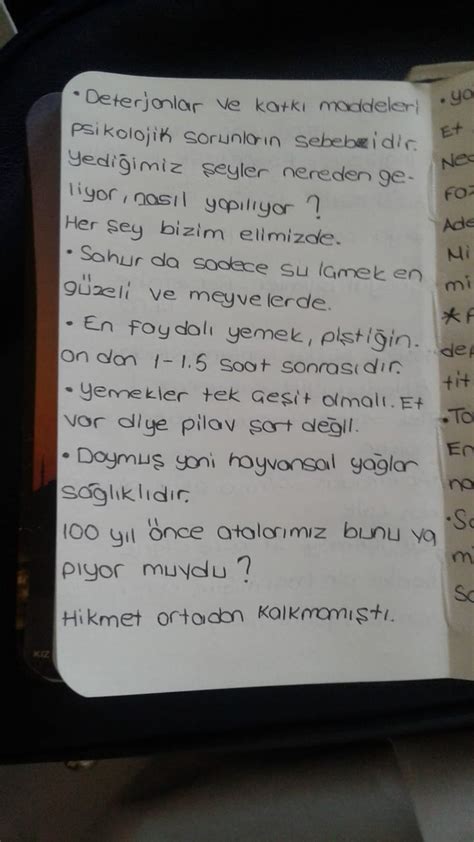 • Deterjanlar ve katkı maddeleri
psikolojik sorunların sebebidir.
Yediğimiz şeyler nereden ge-
liyor, nasıl yapılıyor?
Her şey bizim elimizde.
• Sahur da sadece su içmek en
güzeli ve meyvelerde.
• En faydalı yemek, piştiğin.
on dan 1-1.5 saat sonrasıdır.
• Yemekler tek çeşit olmalı. Et
var diye pilav şart değil.
• Doymuş yani hayvansal yağlar
sağlıklıdır.
100 yıl önce atalarımız bunu ya
pıyor muydu?
Hikmet ortadan kalkmamıştı.
KIZ
• ya
Et
Ne
Fo
Ade
Mi
mi
*F
de
tit
• To
En
na
• Sa
m
Sa